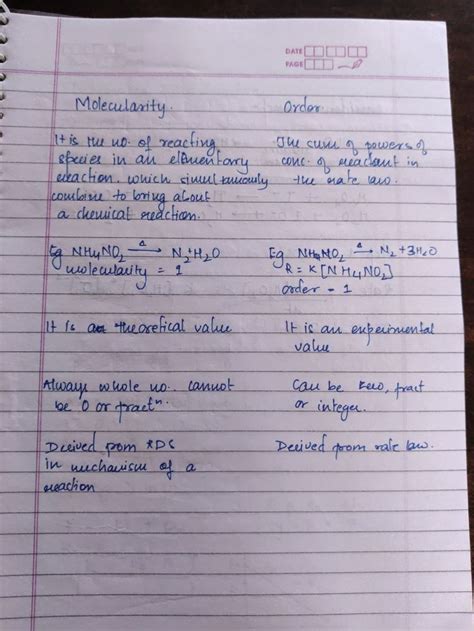 DATE
PAGE
Molecularity.
Order
It is the no. of reacting
species in an elementary
reaction, which simultaneously
combine to bring about
a chemical reaction.
The sum of powers of
conc. of reactant in
the rate law.
Eg NH4NO2 —Δ→ N2+H2O
molecularity = 1
Eg. NH4NO2 —Δ→ N2 + 3H2O
R = K [NH4NO2]
order = 1
It is a theoretical value
It is an experimental
value
Always whole no.. cannot
be 0 or fractn.
Can be zero, fract
or integer.
Derived from RDS
in mechanism of a
reaction
Derived from rate law.